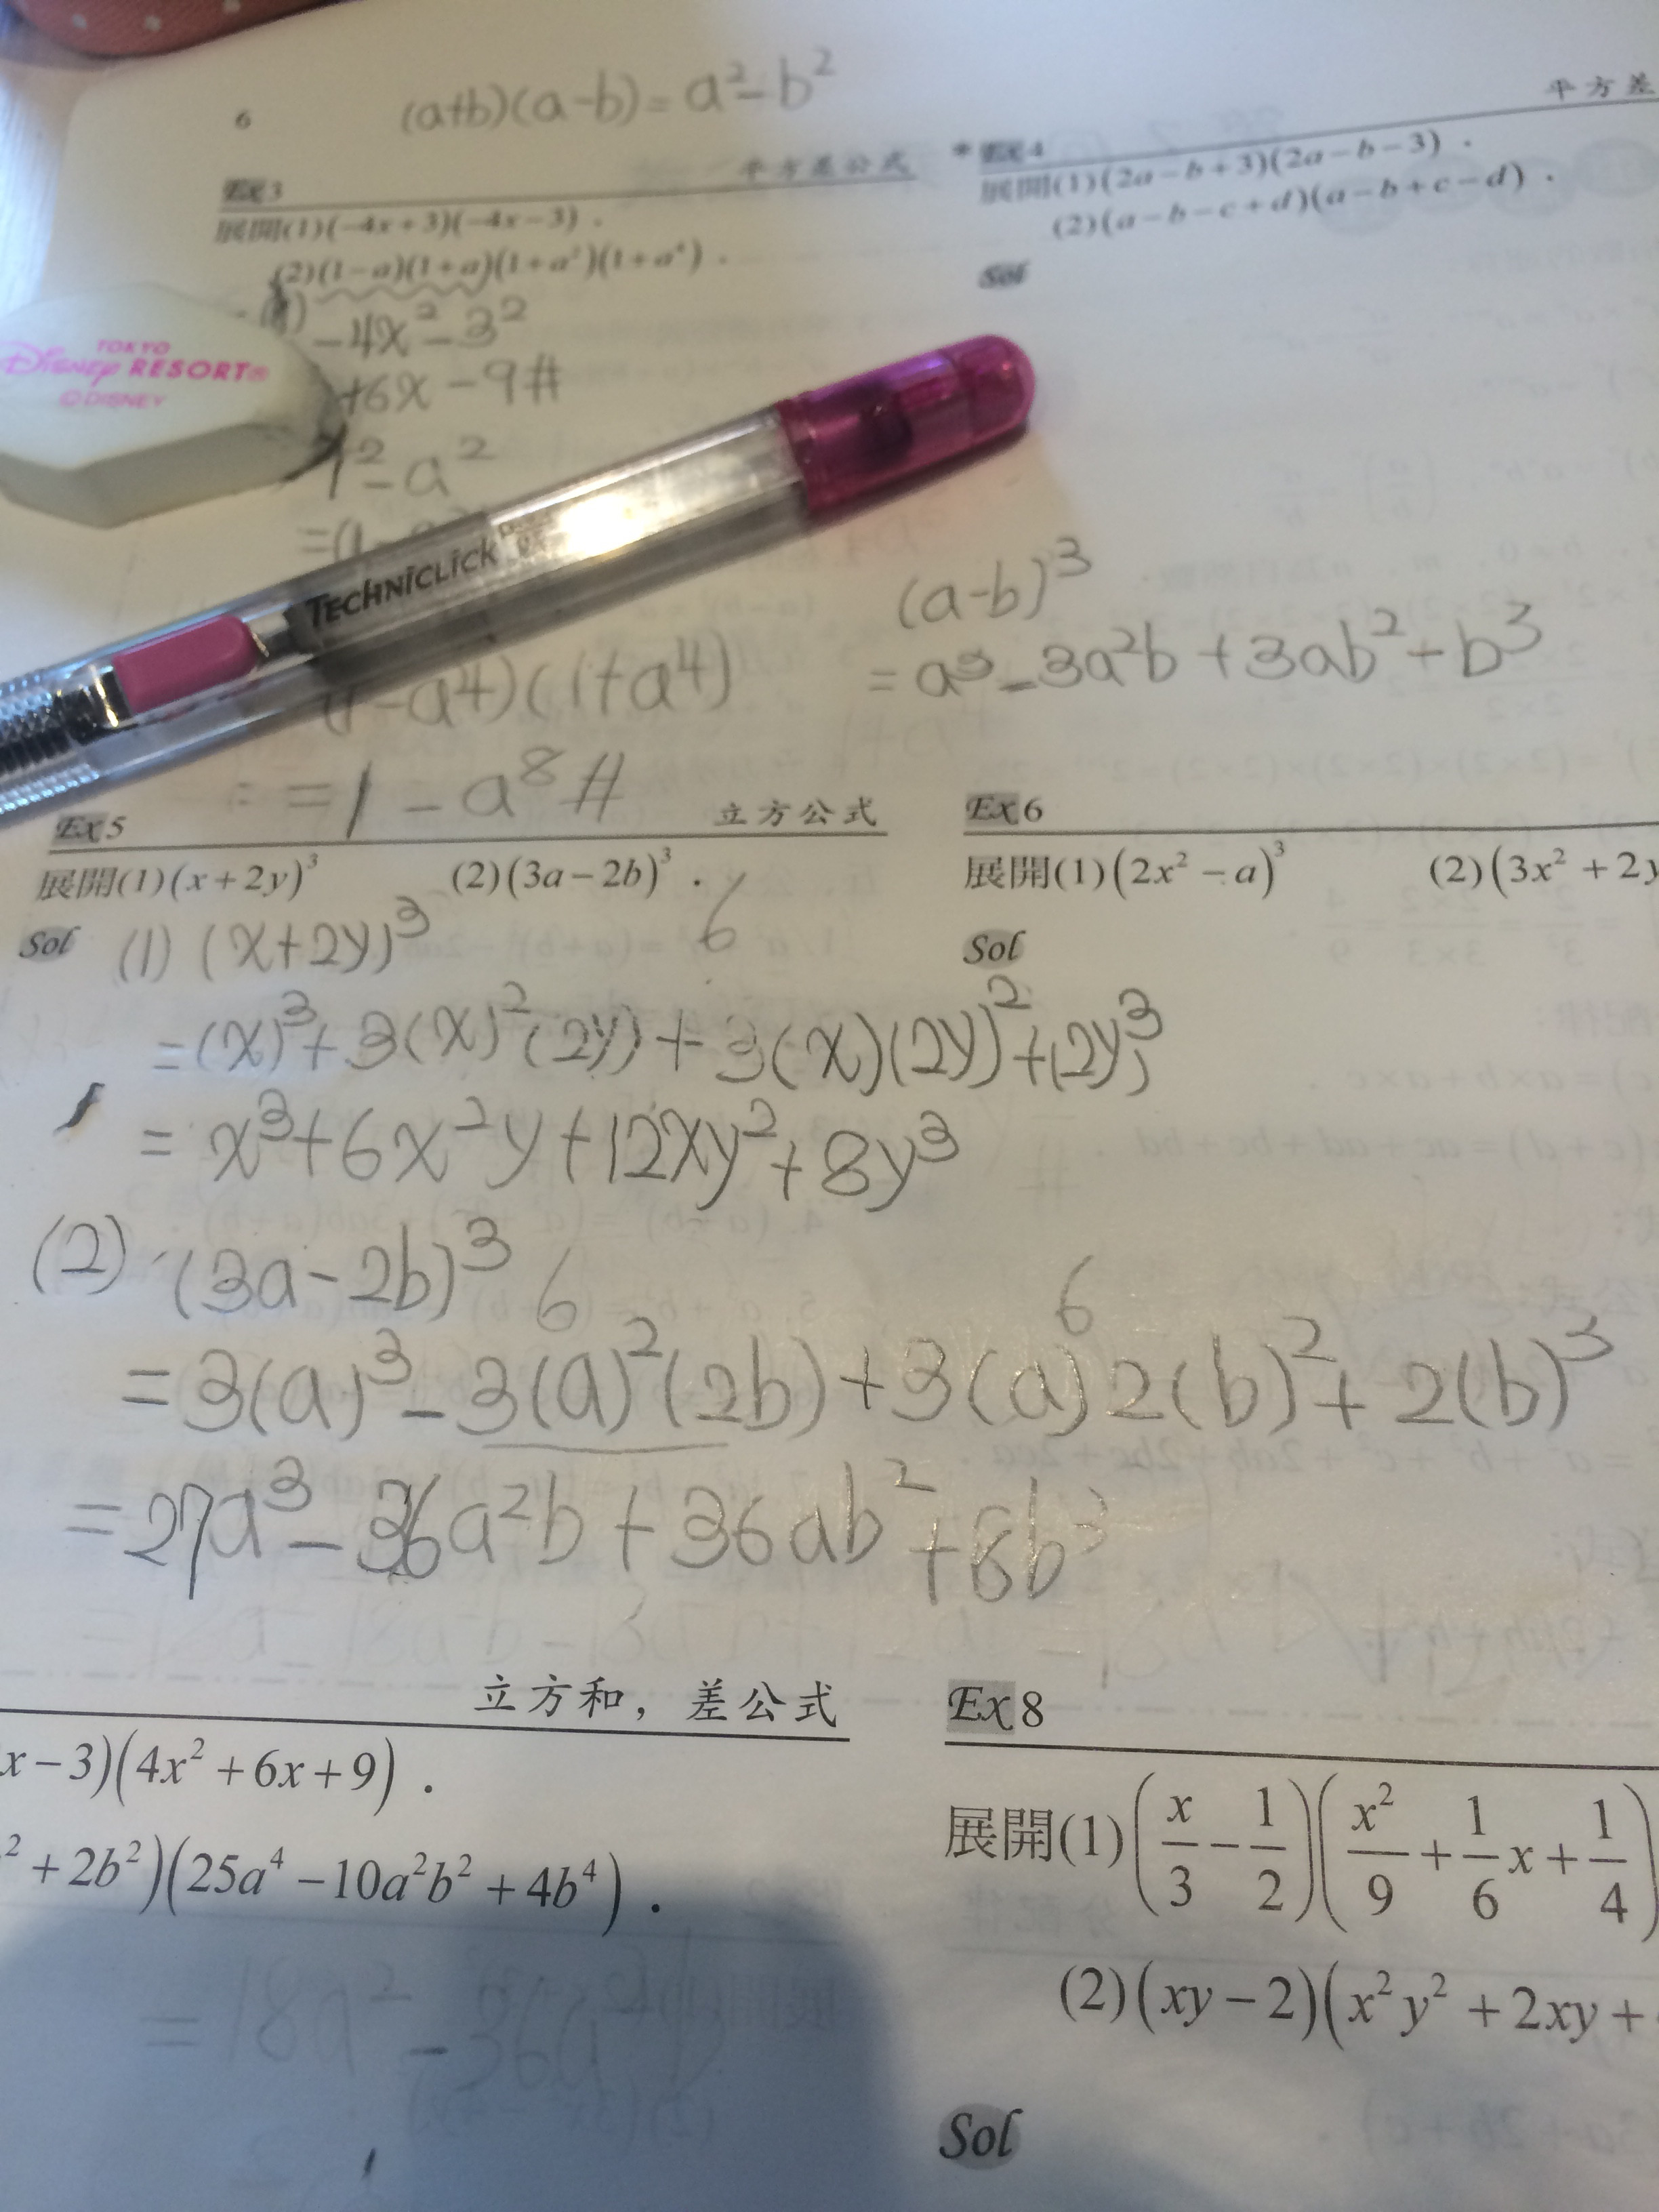 (a+b)(a-b)=a²-b²
6
平方差公式
平方差
Ex 3
展開(1)(-4x+3)(-4x-3).
(2)(1-a)(1+a)(1+a²)(1+a⁴).
-4x²-3²
+6x-9#
1²-a²
=(1-
(1-a⁴)(1+a⁴)
=1-a⁸#
TOKYO
Disney RESORT®
©DISNEY
TECHNICLICK
* Ex 4
展開(1)(2a-b+3)(2a-b-3).
(2)(a-b-c+d)(a-b+c-d).
Sol
(a-b)³
=a³-3a²b+3ab²-b³
Ex 5
立方公式
展開(1)(x+2y)³ (2)(3a-2b)³.
6
Sol (1) (x+2y)³
=(x)³+3(x)²(2y)+3(x)(2y)²+(2y)³
=x³+6x²y+12xy²+8y³
(2) (3a-2b)³
6 6
=3(a)³-3(a)²(2b)+3(a)2(b)²+2(b)³
=27a³-36a²b+36ab²+8b³
Ex 6
展開(1)(2x²-a)³ (2)(3x²+2y
Sol
立方和，差公式
x-3)(4x²+6x+9).
²+2b²)(25a⁴-10a²b²+4b⁴).
Ex 8
展開(1)(x/3-1/2)(x²/9+1/6x+1/4)
(2)(xy-2)(x²y²+2xy+
Sol